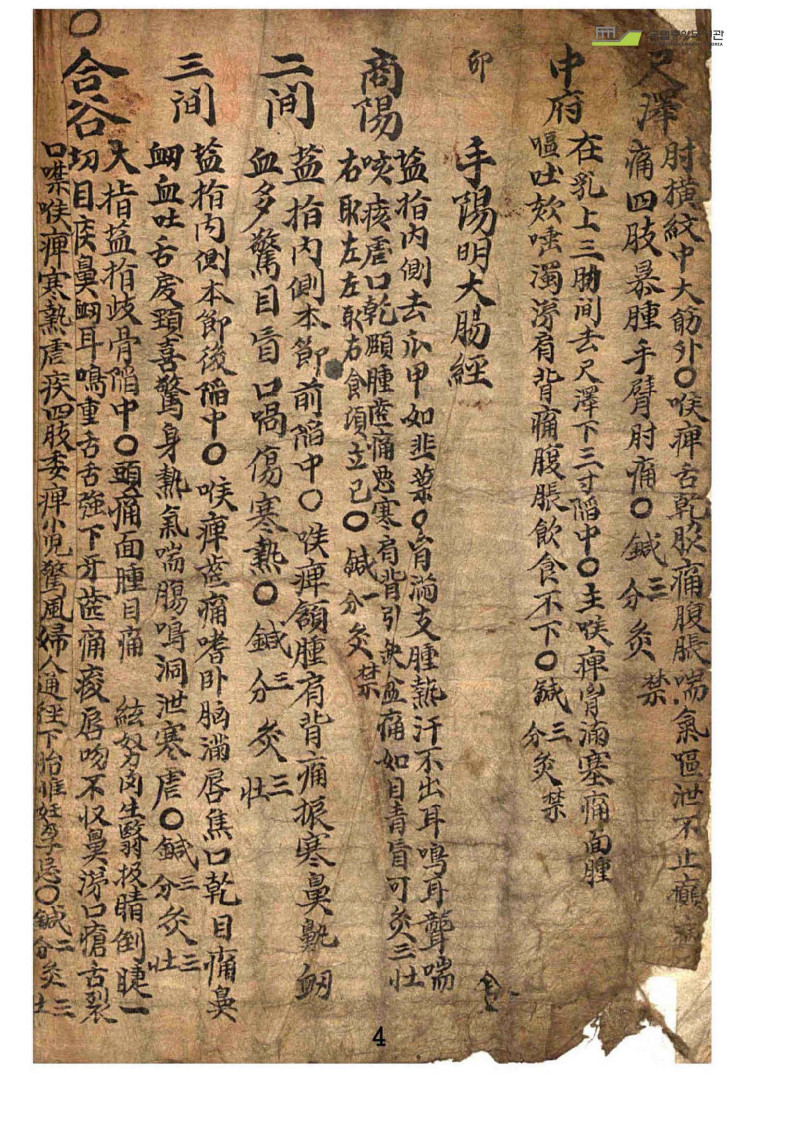 尺澤
肘橫紋中大筋外〇喉痺舌乾脇痛腹脹喘氣嘔泄不止癲
痛四肢暴腫手臂肘痛〇鍼三分灸禁
中府
在乳上三肋间去尺澤下三寸陷中〇主喉痺胷滿塞痛面腫
嘔吐欬唾濁涕肩背痛腹脹飮食不下〇鍼三分灸禁
卯
手陽明大腸經
商陽
盐指內側去爪甲如韭葉〇胷滿支腫熱汗不出耳鳴耳聾喘
咳痎虐口乾頥腫齒痛惡寒肩背引缺盆痛如目靑盲可灸三壯
右取左左取右食頃立已〇鍼一分灸禁
二间
盐指內側本節前陷中〇喉痺頷腫肩背痛振寒鼻鼽衂
血多驚目盲口喎傷寒熱〇鍼三分灸三壯
三间
盐指內側本節後陷中〇喉痺齒痛嗜卧脑滿唇焦口乾目痛鼻
衂血吐舌戾頸喜驚身熱氣喘腸鳴洞泄寒虐〇鍼三分灸三壯
〇
合谷
大指盐指歧骨陷中〇頭痛面腫目痛 絃努肉生翳扳睛倒睫一
切目疾鼻衂耳鳴重舌舌强下牙齒痛痠唇吻不收鼻涕口瘡舌裂
口噤喉痺寒熱虐疾四肢委痺小兒驚風婦人通經下胎惟妊孕忌〇鍼二分灸三壯
4